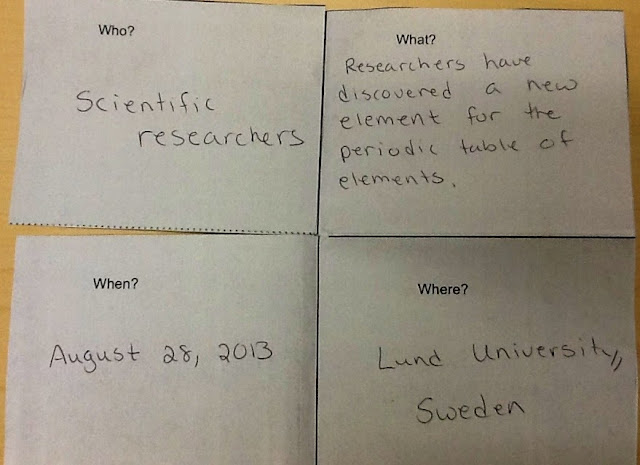 Who?
Scientific
researchers
What?
Researchers have
discovered a new
element for the
periodic table of
elements.
When?
August 28, 2013
Where?
Lund University,
Sweden